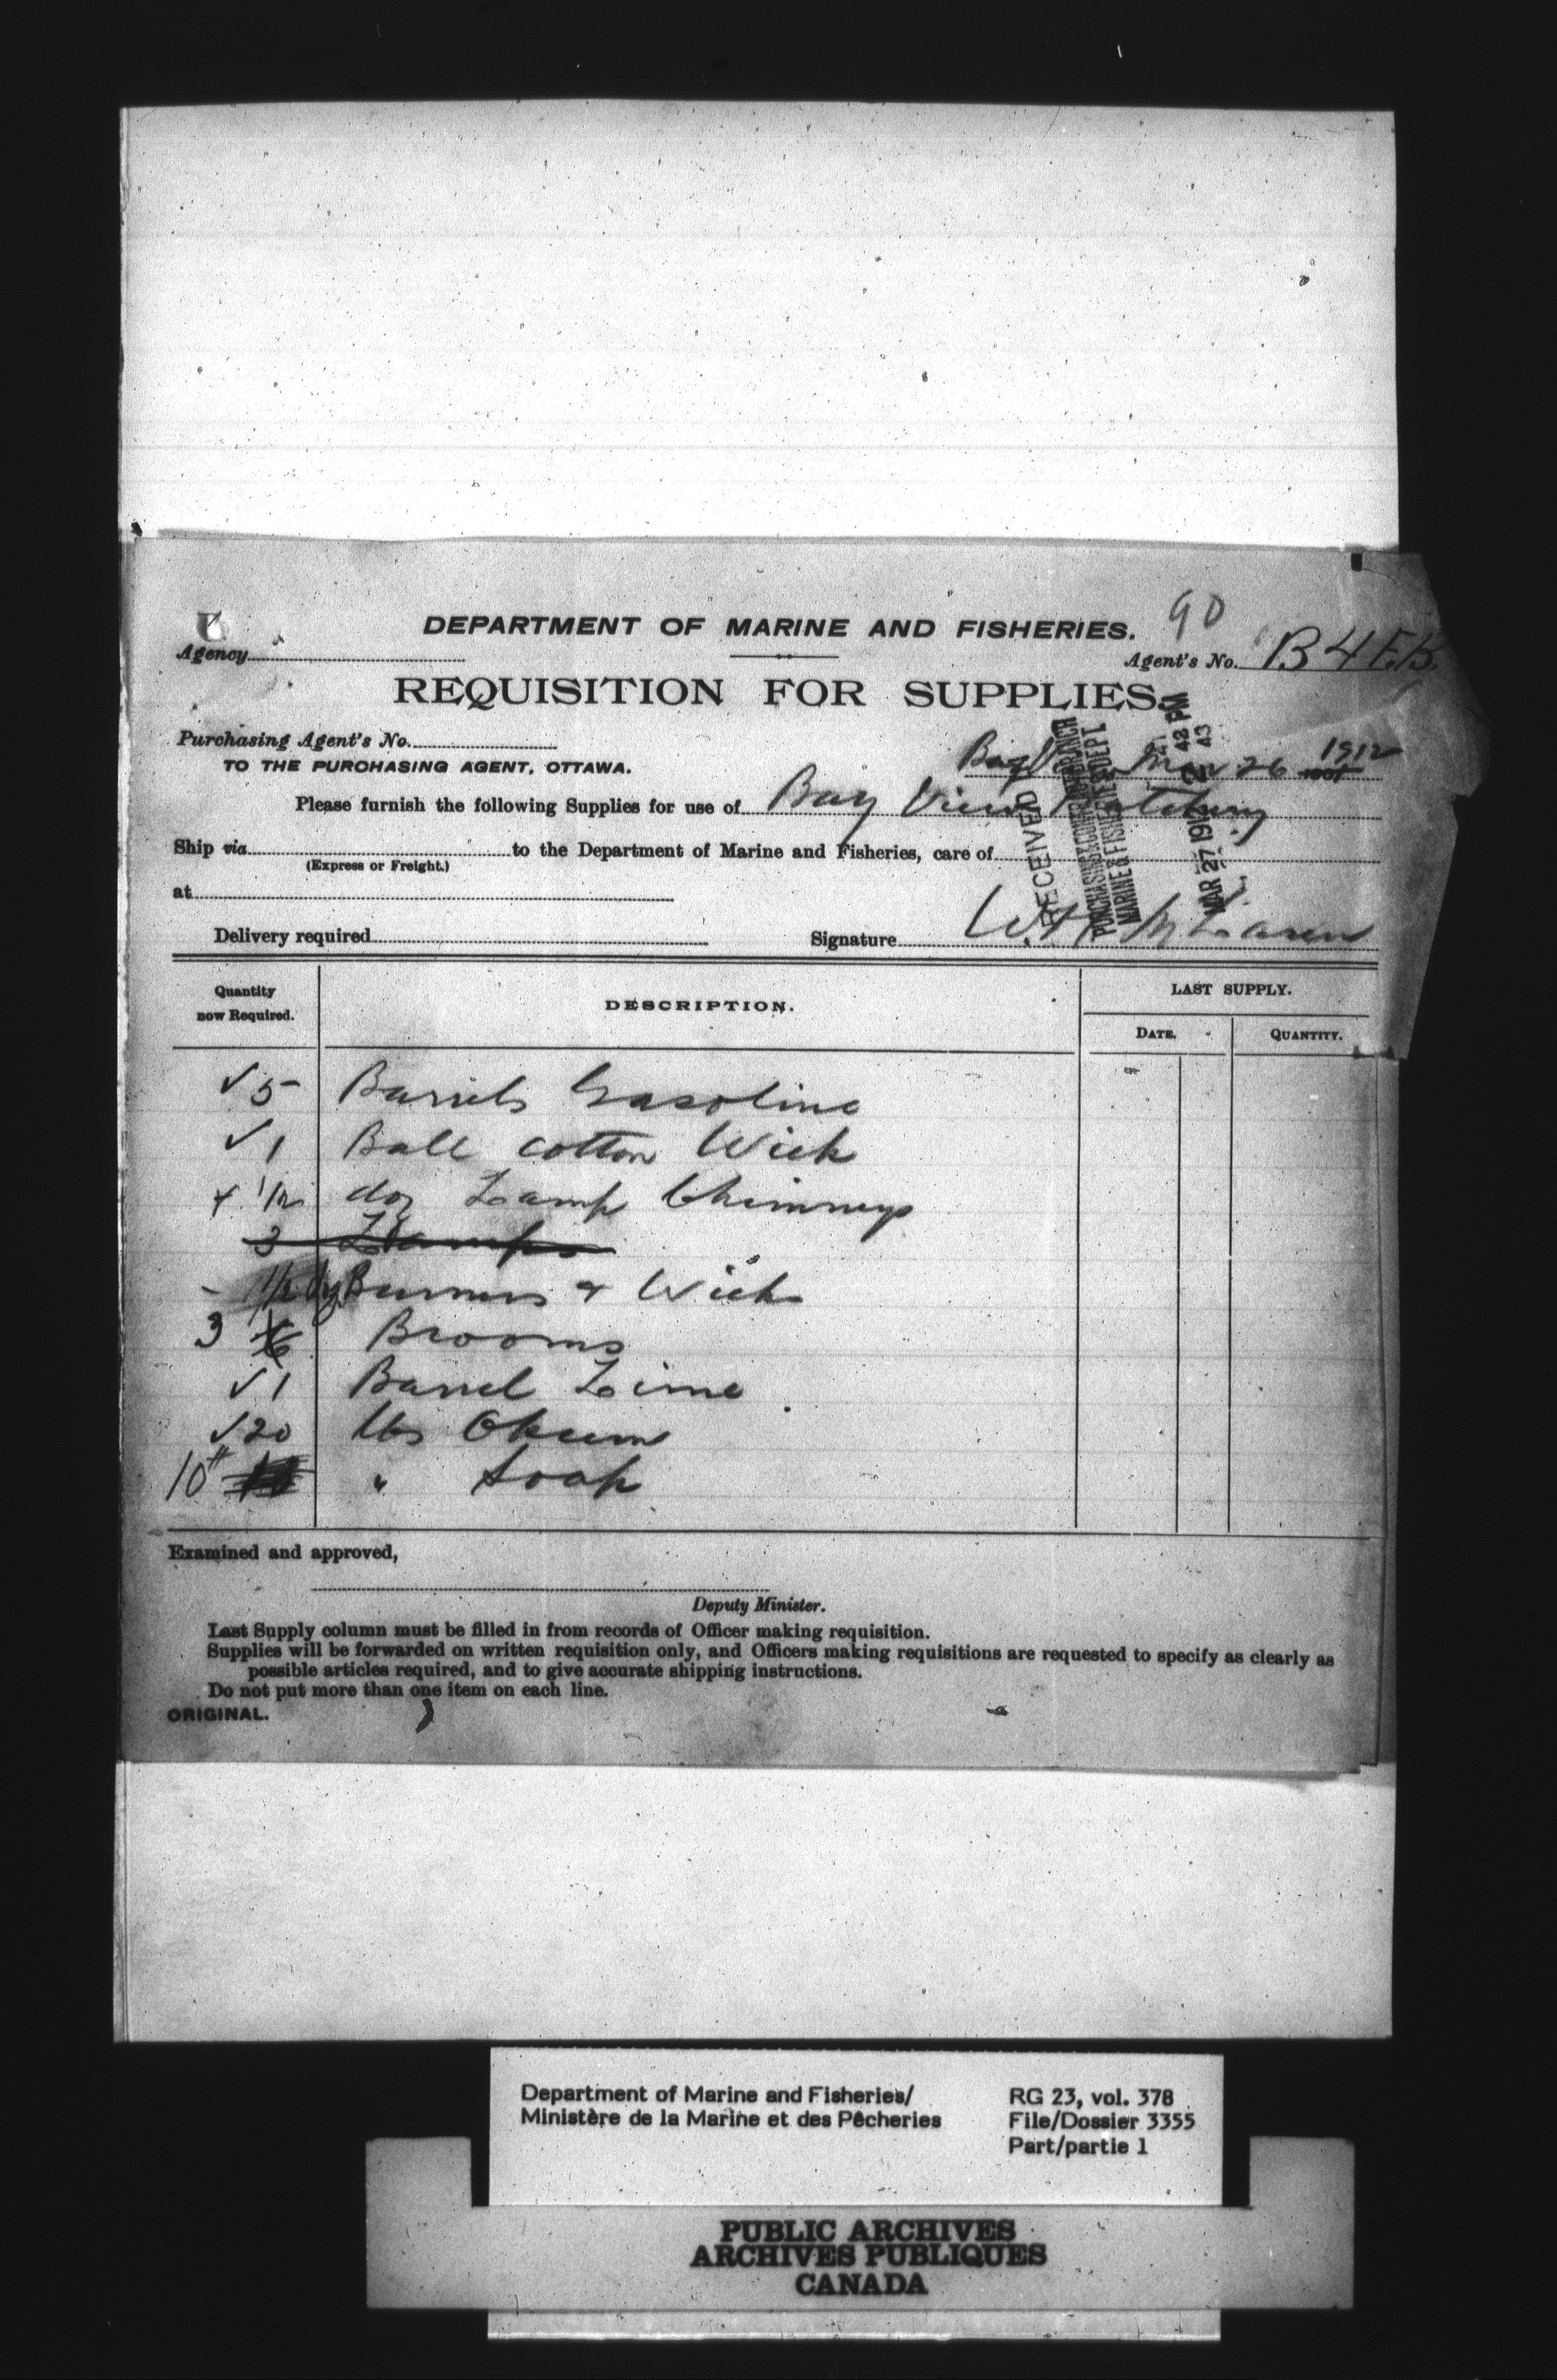 90
DEPARTMENT OF MARINE AND FISHERIES.
Agency
Agent's No. B 4
REQUISITION FOR SUPPLIES.
Purchasing Agent's No.
Bay Mar 26 1912
TO THE PURCHASING AGENT, OTTAWA.
Please furnish the following Supplies for use of Bay View Hatchery
Ship via to the Department of Marine and Fisheries, care of
(Express or Freight.)
at
Delivery required
Signature W. McLaren
RECEIVED
PURCHASING & CONTRACT BRANCH
MARINE & FISHERIES DEPT.
MAR 27 1912
Quantity now Required.
DESCRIPTION.
LAST SUPPLY.
DATE.
QUANTITY.
✓ 5 Barrels Gasoline
✓ 1 Ball cotton Wick
1/2 doz Lamp Chimneys
3 Lamps
1/2 dz Burners & Wick
3 6 Brooms
✓ 1 Barrel Lime
✓ 20 lbs Okum
10# " Soap
Examined and approved,
Deputy Minister.
Last Supply column must be filled in from records of Officer making requisition.
Supplies will be forwarded on written requisition only, and Officers making requisitions are requested to specify as clearly as
possible articles required, and to give accurate shipping instructions.
Do not put more than one item on each line.
ORIGINAL.
Department of Marine and Fisheries/
Ministère de la Marine et des Pêcheries
RG 23, vol. 378
File/Dossier 3355
Part/partie 1
PUBLIC ARCHIVES
ARCHIVES PUBLIQUES
CANADA